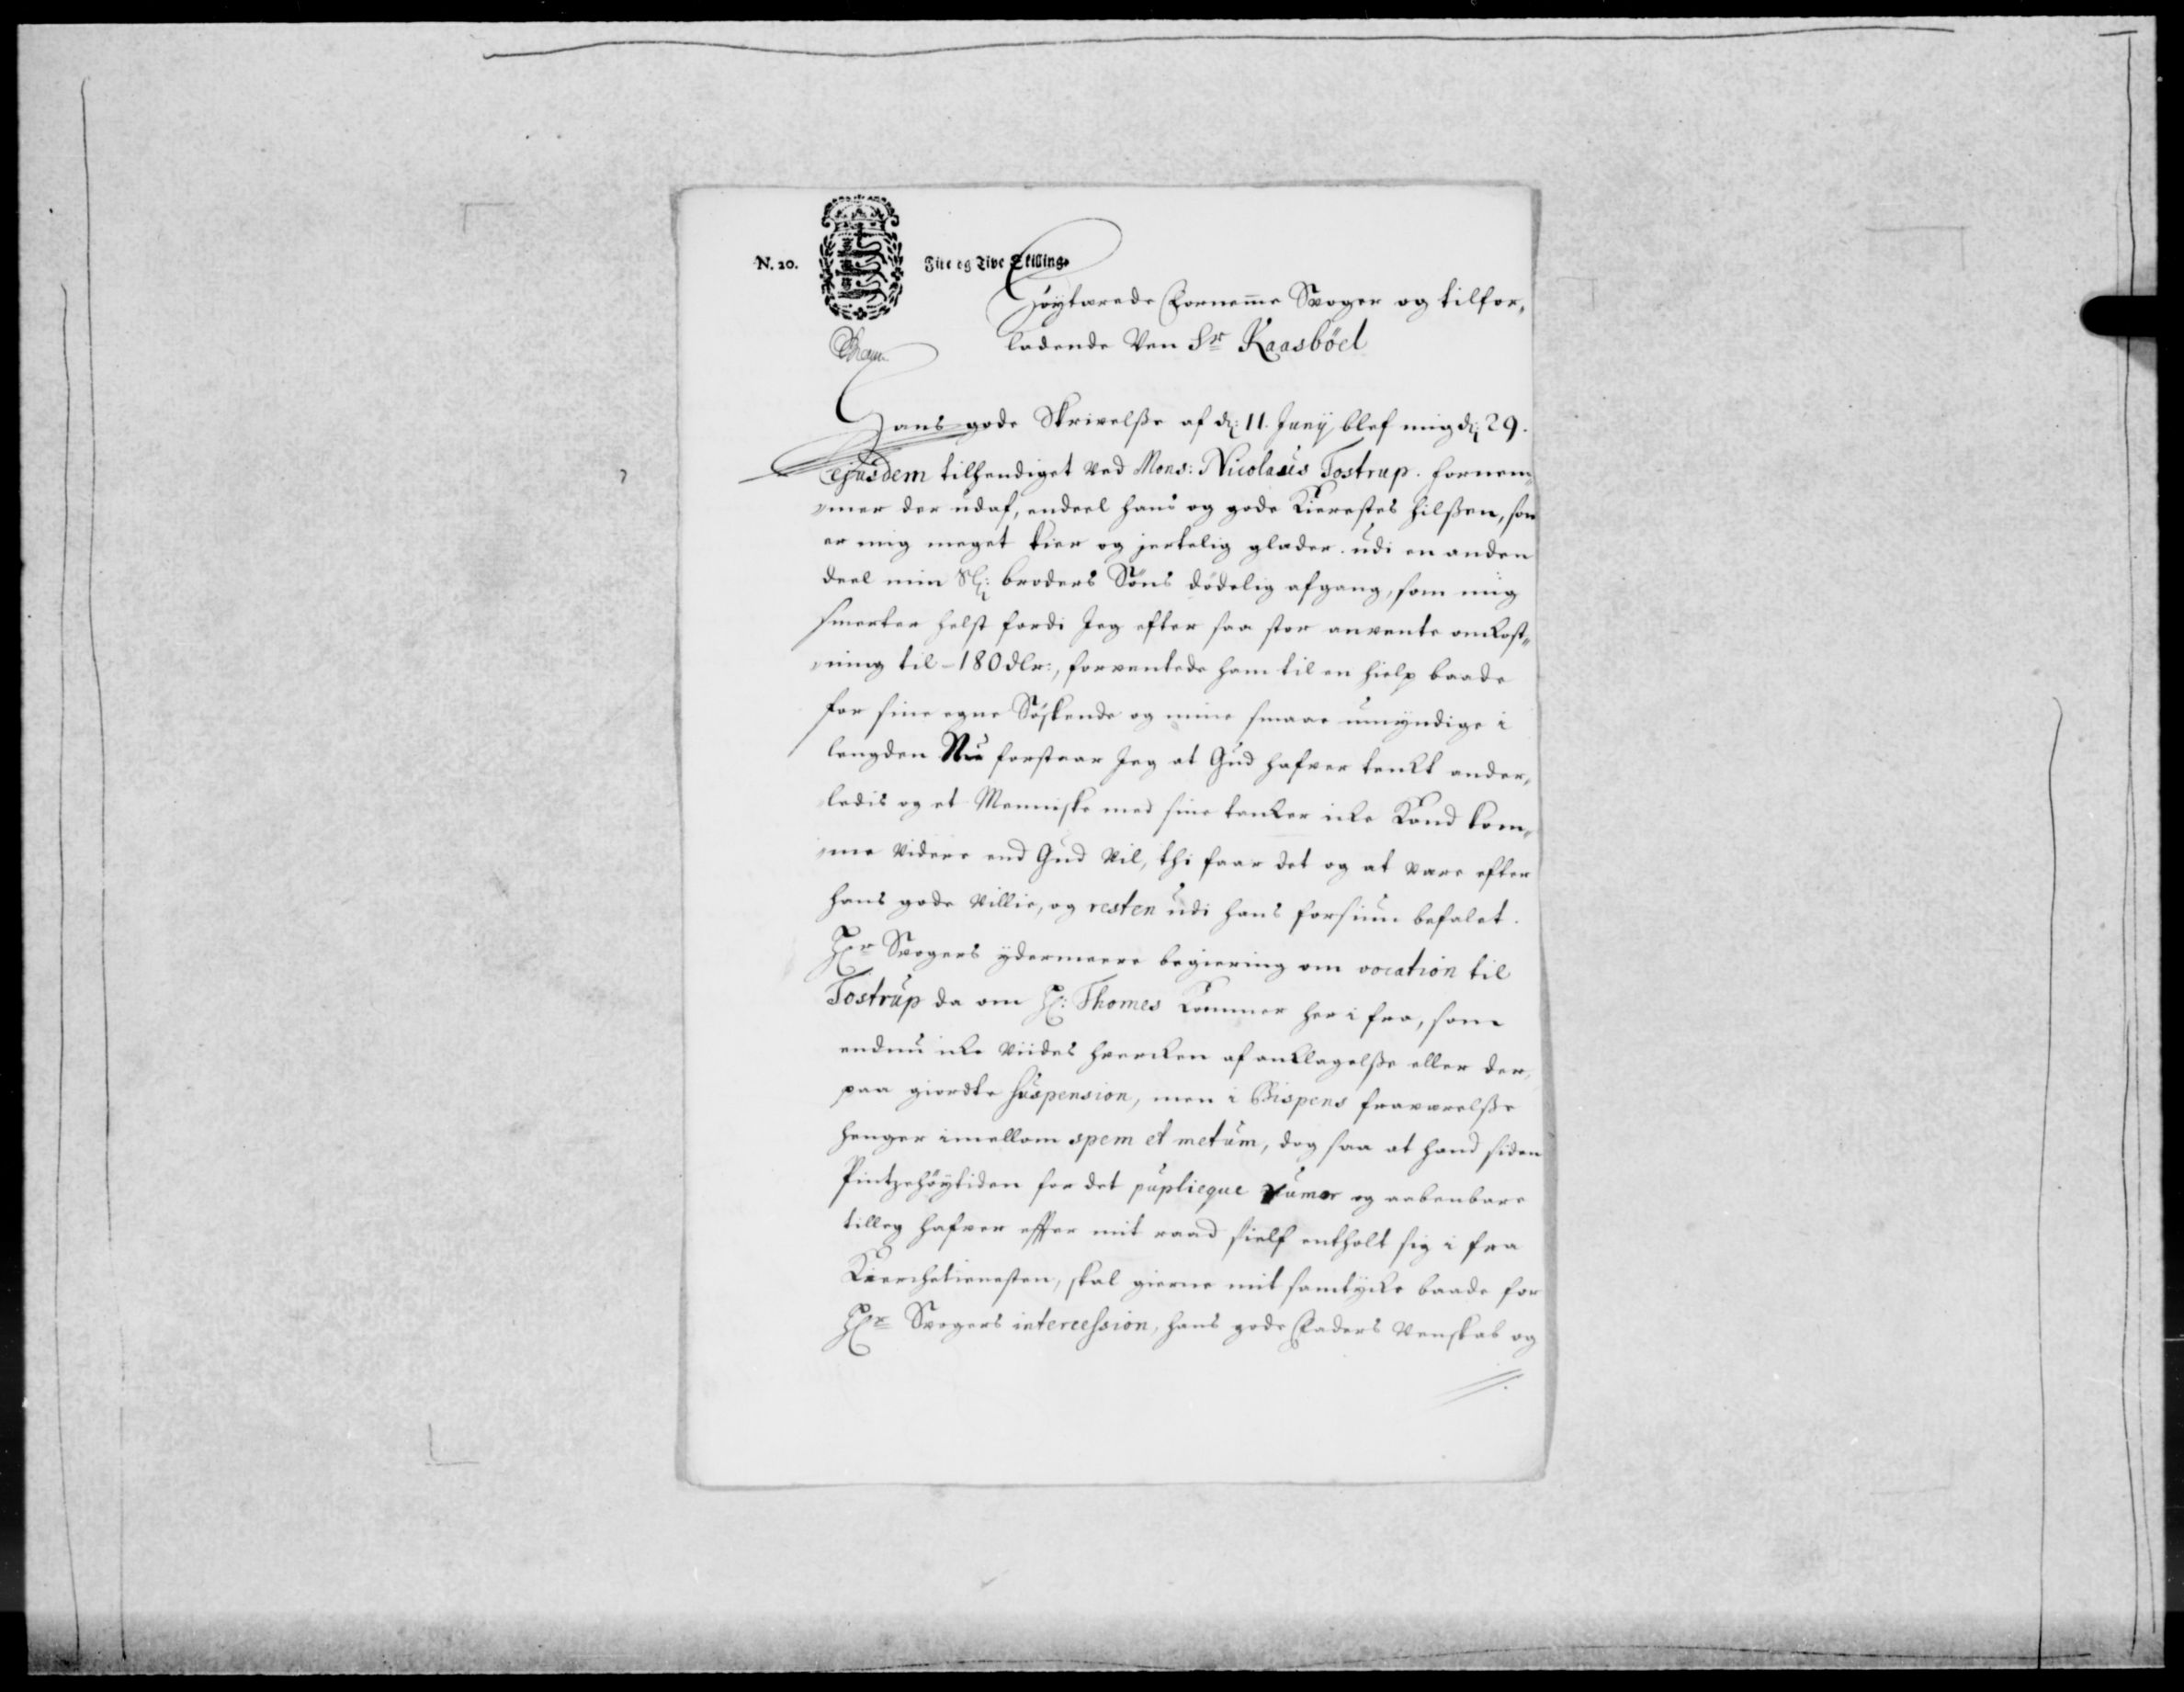 N. 20. Fire og Tive Skilling.
Høytærede Fornemme Svoger og tilfor„
ladende Ven Sr Kaasböel
Hans gode Skrivelsse af d: 11. Junij blef mig d: 29.
Ejusdem tilhendiget ved Mons: Nicolaus Tostrup. fornem„
„mer der udaf, endeel hans og gode Kierestes hilssen, som
er mig meget kier og jertelig glæder. udi en anden
deel min Sl: broders Søns dødelig afgang, som mig
smerter helst fordi Jeg efter saa stor anvente omkost„
„ning til - 180 dlr:, forventede ham til en hielp baade
for sine egne Søskende og mine smaae umyndige i
lengden Nu forstaar Jeg at Gud hafver tenkt ander„
ledis og et Menniske med sine tanker icke Kand kom„
„me videre end Gud vil, thi faar det og at være efter
hans gode villie, og resten udi hans forsiun befalet.
Hr Svogers ydermeere begiering om vocation til
Tostrup da om H: Thomes kommer her i fra, som
endnu icke viides hvercken af anklagelsse eller der„
paa giordte suspension, men i Bispens fraværelsse
henger imellem spem et metum, dog saa at hand siden
Pintzehøytiden for det puplicque rumor og aabenbare
tilleg hafver efter mit raad sielf entholt sig i fra
Kierchetienesten, skal gierne mit samtycke baade for
Hr Svogers intercession, hans gode Faders venskab og